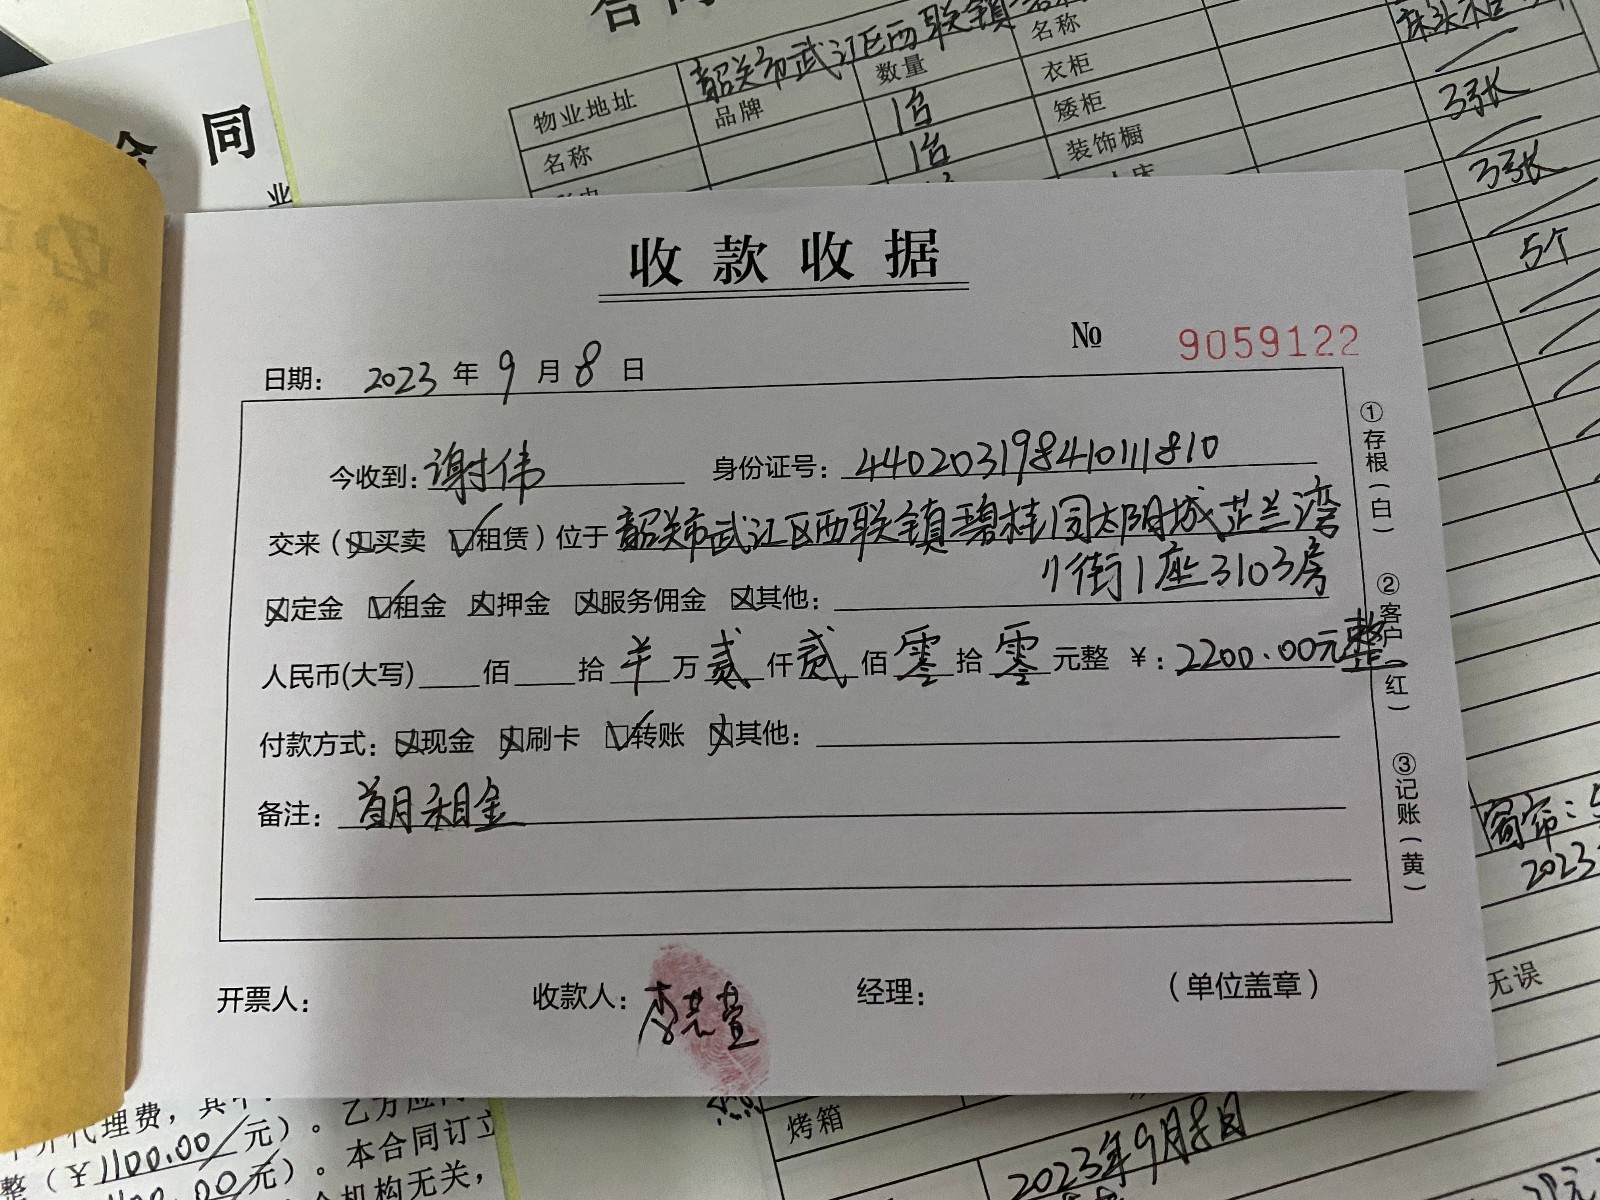 合同
物业地址 韶关市武江区西联镇
名称 品牌 数量 名称
1台 衣柜
1台 矮柜 3张
装饰橱 3张
5个
合 同
业
收款收据
№ 9059122
日期： 2023 年 9 月 8 日
今收到：谢伟 身份证号：440203198410111810
交来（☒买卖 ☑租赁）位于 韶关市武江区西联镇碧桂园太阳城芷兰湾
11街1座3103房
☒定金 ☑租金 ☒押金 ☒服务佣金 ☒其他：
人民币(大写) 佰 拾 万 贰 仟 贰 佰 零 拾 零 元整 ¥：2200.00元整
付款方式：☒现金 ☒刷卡 ☑转账 ☒其他：
备注： 首月租金
①存根（白） ②客户（红） ③记账（黄）
开票人： 收款人： 经理： （单位盖章）
窗帘：5
2023
无误
烤箱
2023年9月8日
代理费，其中
整（¥1100.00元）。乙方应
00元）。本合同订立
机构无关，